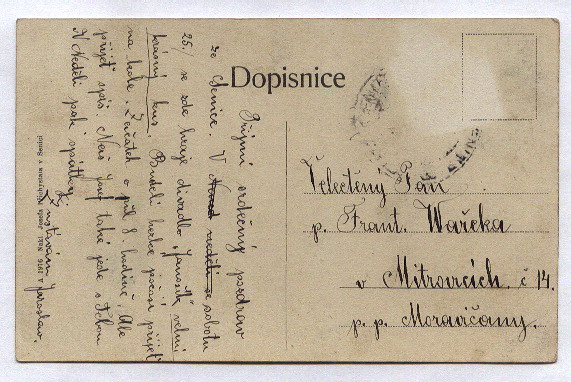 Dopisnice
Přijmi srdečný pozdrav
ze Senice. V neděli se sobotu
25./ se zde hraje divadlo "Janošík" velmi
krásný kus. Budeli hezké počasí přijeď
na kole. Začátek o půl 8. hodině. Ale
přijeď spíš. Náš Josef také jede s Tebou
V Neděli pak zpátky.
Zůstávám Jaroslav.
Velectěný Pan
p. Frant. Wařeka
v Mitrovicích č 14.
p. p. Moravičany.